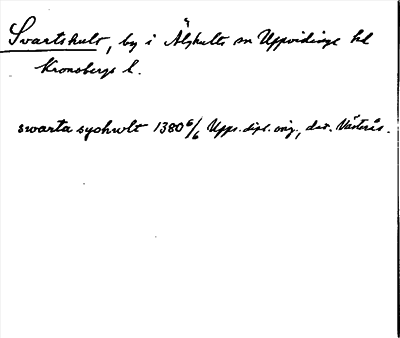 Svartshult, by i Älghults sn Uppvidinge hd
Kronobergs l.
swarta syohwlt 1380 6/6 Upps. dipl. orig., dat. Västerås.